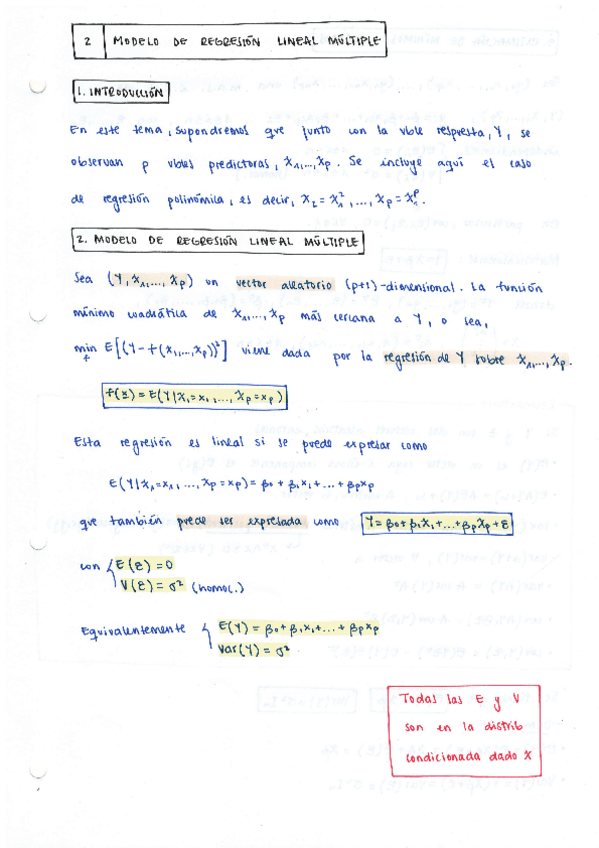 2 MODELO DE REGRESIÓN LINEAL MÚLTIPLE
1. INTRODUCCIÓN
En este tema, supondremos que junto con la vble respuesta, Y, se
observan p vbles predictoras, X₁,...,Xp. Se incluye aquí el caso
de regresión polinómica, es decir, X₂ = X₁², ..., Xp = X₁ᵖ.
2. MODELO DE REGRESIÓN LINEAL MÚLTIPLE
Sea (Y, X₁,..., Xp) un vector aleatorio (p+1)-dimensional. La función
mínimo cuadrática de X₁,..., Xp más cercana a Y, o sea,
min E[(Y-f(X₁,...,Xp))²] viene dada por la regresión de Y sobre X₁,..., Xp.
f
f(x) = E(Y|X₁=x₁,..., Xp=xp)
Esta regresión es lineal si se puede expresar como
E(Y|X₁=x₁, ..., Xp=xp) = β₀ + β₁x₁ + ... + βpxp
que también puede ser expresada como Y = β₀ + β₁X₁ + ... + βpXp + ε
con { E(ε) = 0
V(ε) = σ² (homoc.)
Equivalentemente { E(Y) = β₀ + β₁x₁ + ... + βpxp
Var(Y) = σ²
Todas las E y V
son en la distrib
condicionada dado X